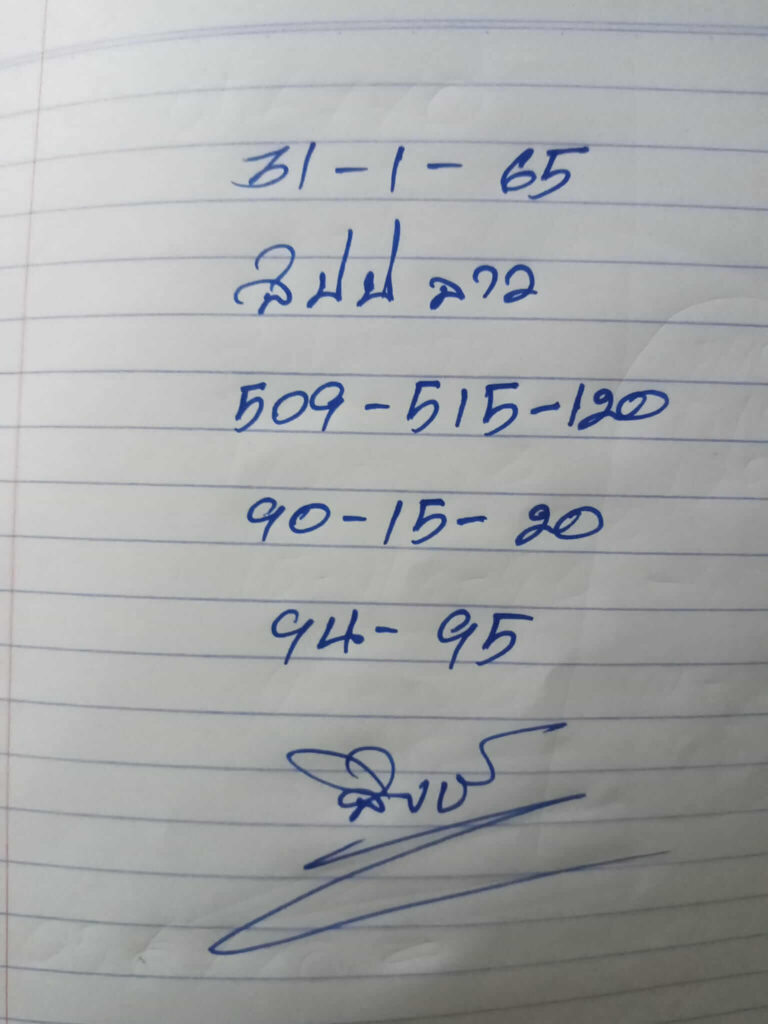 31-1-65
สปป ลาว
509-515-120
90-15-20
94-95